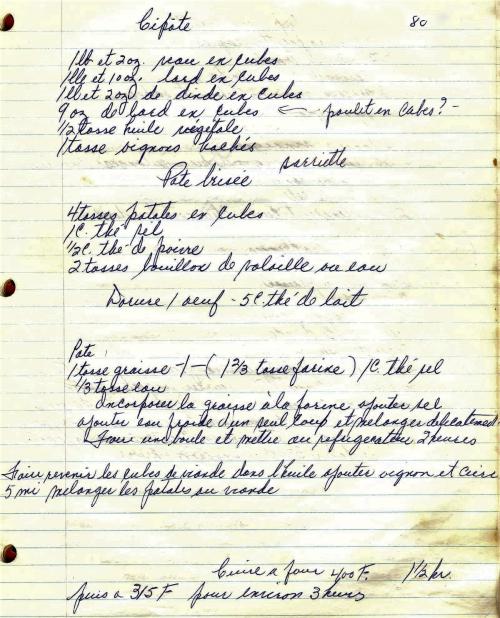 Cipâte 80
1 lb et 2 oz. veau en cubes
1 lb et 10 oz. lard en cubes
1 lb et 2 oz de dinde en cubes
9 oz de lard en cubes ← poulet en cubes? -
1/2 tasse huile végétale
1 tasse oignons hachés
sarriette
Pate brisée
4 tasses patates en cubes
1 C. thé sel
1/2 C. thé de poivre
2 tasses bouillon de volaille ou eau
Dorure 1 oeuf - 5 C. thé de lait
Pate :
1 tasse graisse -/-( 1 2/3 tasse farine ) 1 C. thé sel
1/3 tasse eau
Incorporer la graisse à la farine ajouter sel
ajouter eau froide d'un seul coup et mélanger délicatement.
Faire une boule et mettre au réfrigérateur 2 heures
Faire revenir les cubes de viande dans l'huile ajouter oignon et cuire
5 mi mélanger les patates au viande
Cuire a four 400 F. 1 1/2 hr.
puis a 315 F pour environ 3 heures